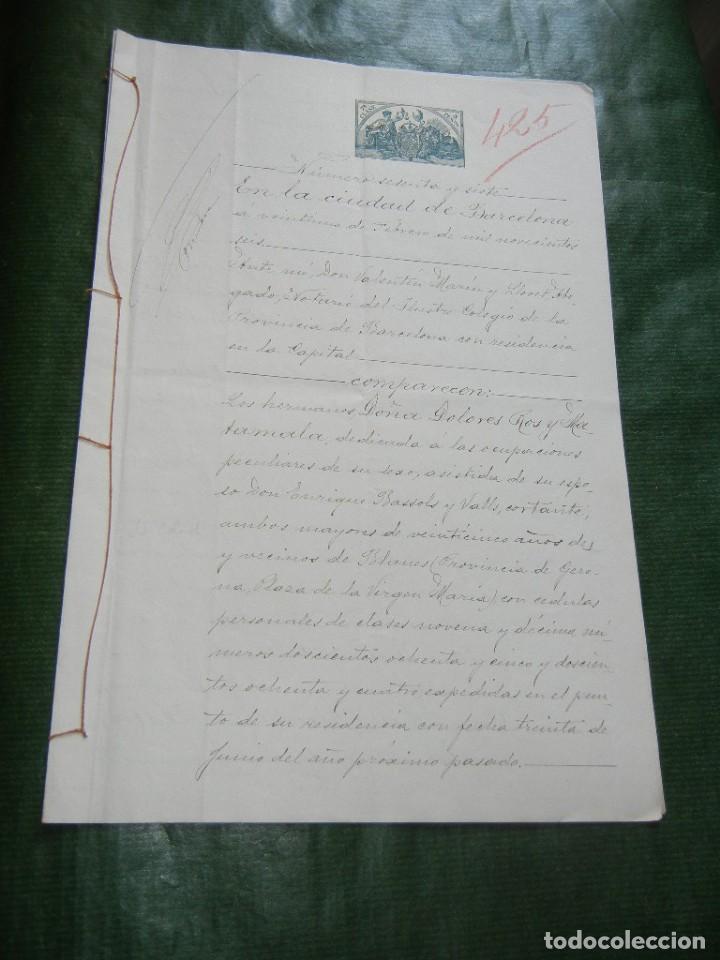 425
Número sesenta y siete
En la ciudad de Barcelona
a veintiuno de Febrero de mil novecientos
seis
Ante mí, Don Valentín Marín y Llovet Abo-
gado, Notario del Ilustre Colegio de la
Provincia de Barcelona con residencia
en la Capital
comparecen:
Los hermanos, Doña Dolores Ros y Ma-
tamala, dedicada á las ocupaciones
peculiares de su sexo, asistida de su espo-
so Don Enrique Bassols y Valls, cortante,
ambos mayores de veinticinco años de
y vecinos de Blanes (Provincia de Gero-
na, Plaza de la Virgen María), con cedulas
personales de clases novena y décima nú-
meros doscientos ochenta y cinco y doscien-
tos ochenta y cuatro expedidas en el pun-
to de su residencia con fecha treinta de
Junio del año próximo pasado.
todocoleccion